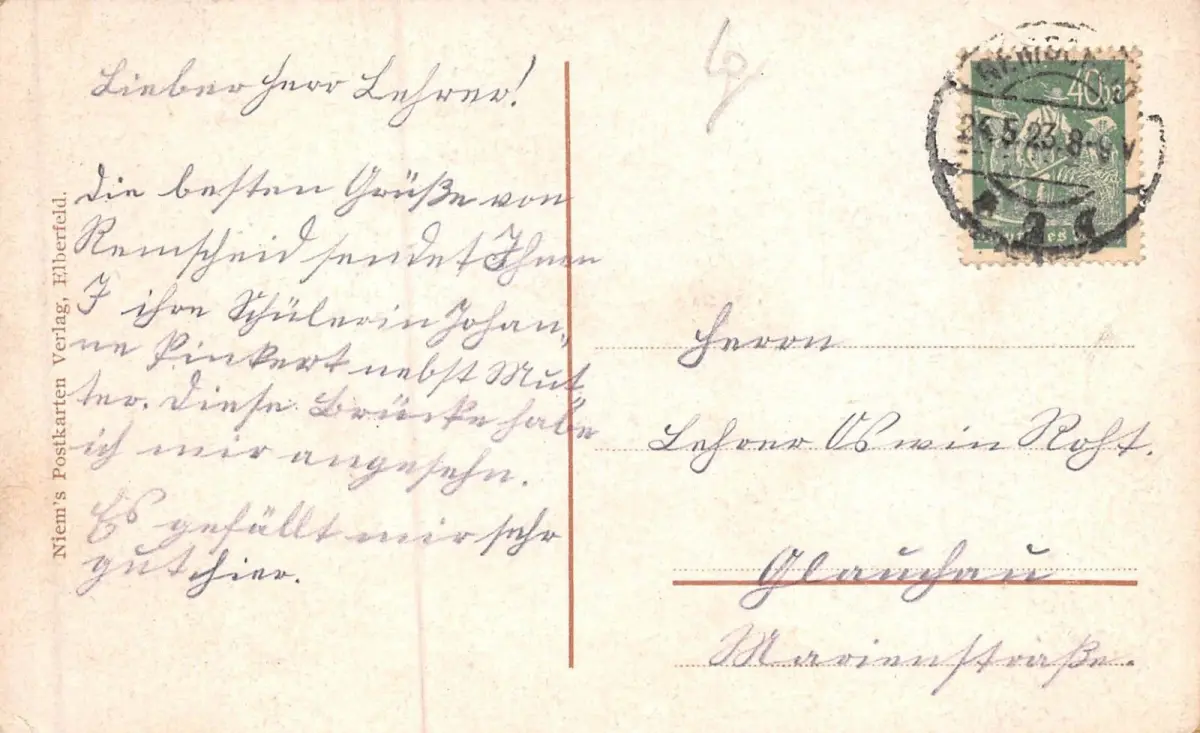 Lieber Herr Lehrer!
Die besten Grüße von
Remscheid sendet Ihnen
I ihre Schülerin Johan„
ne Pinkert nebst Mut„
ter. Diese Brücke habe
ich mir angesehn.
Es gefällt mir sehr
gut hier.
Niem's Postkarten Verlag, Elberfeld.
40
24.5.23.8-9V
Herrn
Lehrer Oswin Roht.
Glauchau
Marienstraße.